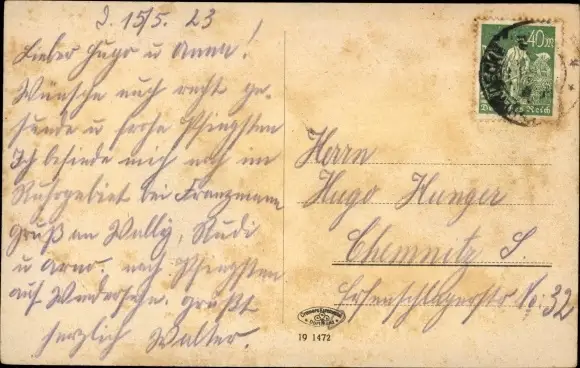 D. 15/5. 23
Lieber Hugo u Anna!
Wünsche euch recht ge-
sunde u frohe Pfingsten
Ich befinde mich noch im
Ruhrgebiet bei Franzmann
Gruß an Wally, Rudi
u Arno. nach Pfingsten
auf Wiedersehn. grüßt
herzlich Walter.
40 M
Reich
Herrn
Hugo Hunger
Chemnitz S.
No: 32
19 1472